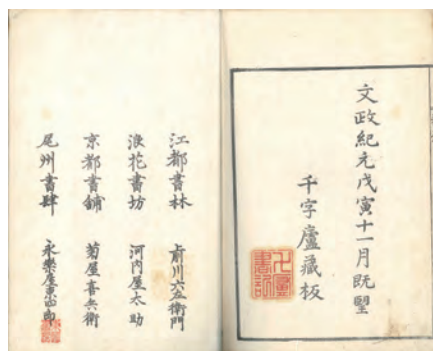 文政紀元戊寅十一月既朢
千字廬藏板
江都書林 前川六左衛門
浪花書坊 河内屋太助
京都書舖 菊屋喜兵衛
尾州書肆 永樂屋東四郎